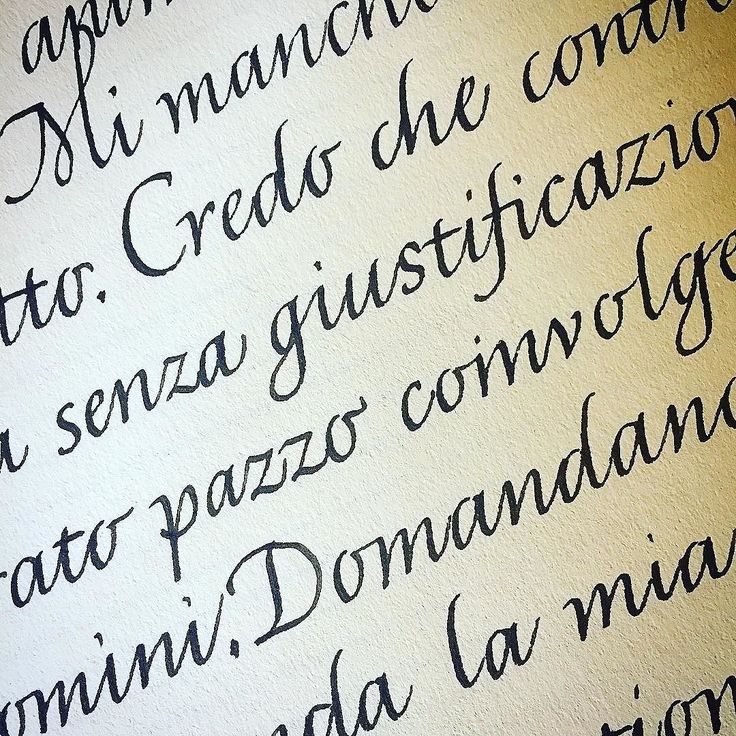 anim
Mi manch
tto. Credo che contr
a senza giustificazion
rato pazzo coinvolge
omini. Domandand
nda la mia
tion